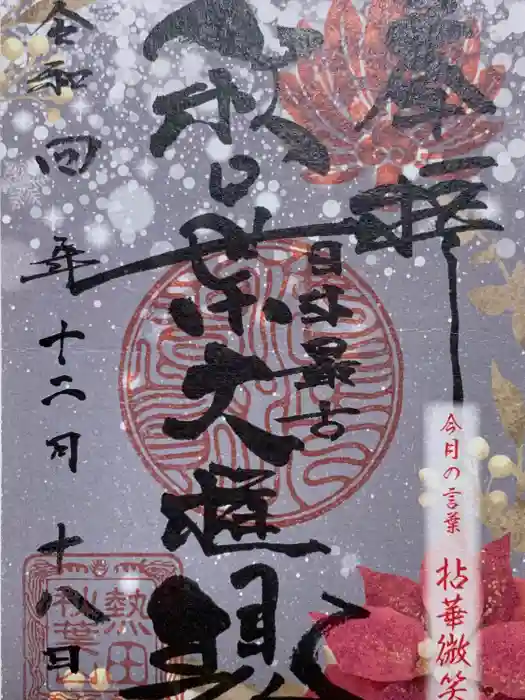 奉拝
日本最古
秋葉大権現
令和四年十二月十八日
今月の言葉
拈華微笑
熱田
秋葉山